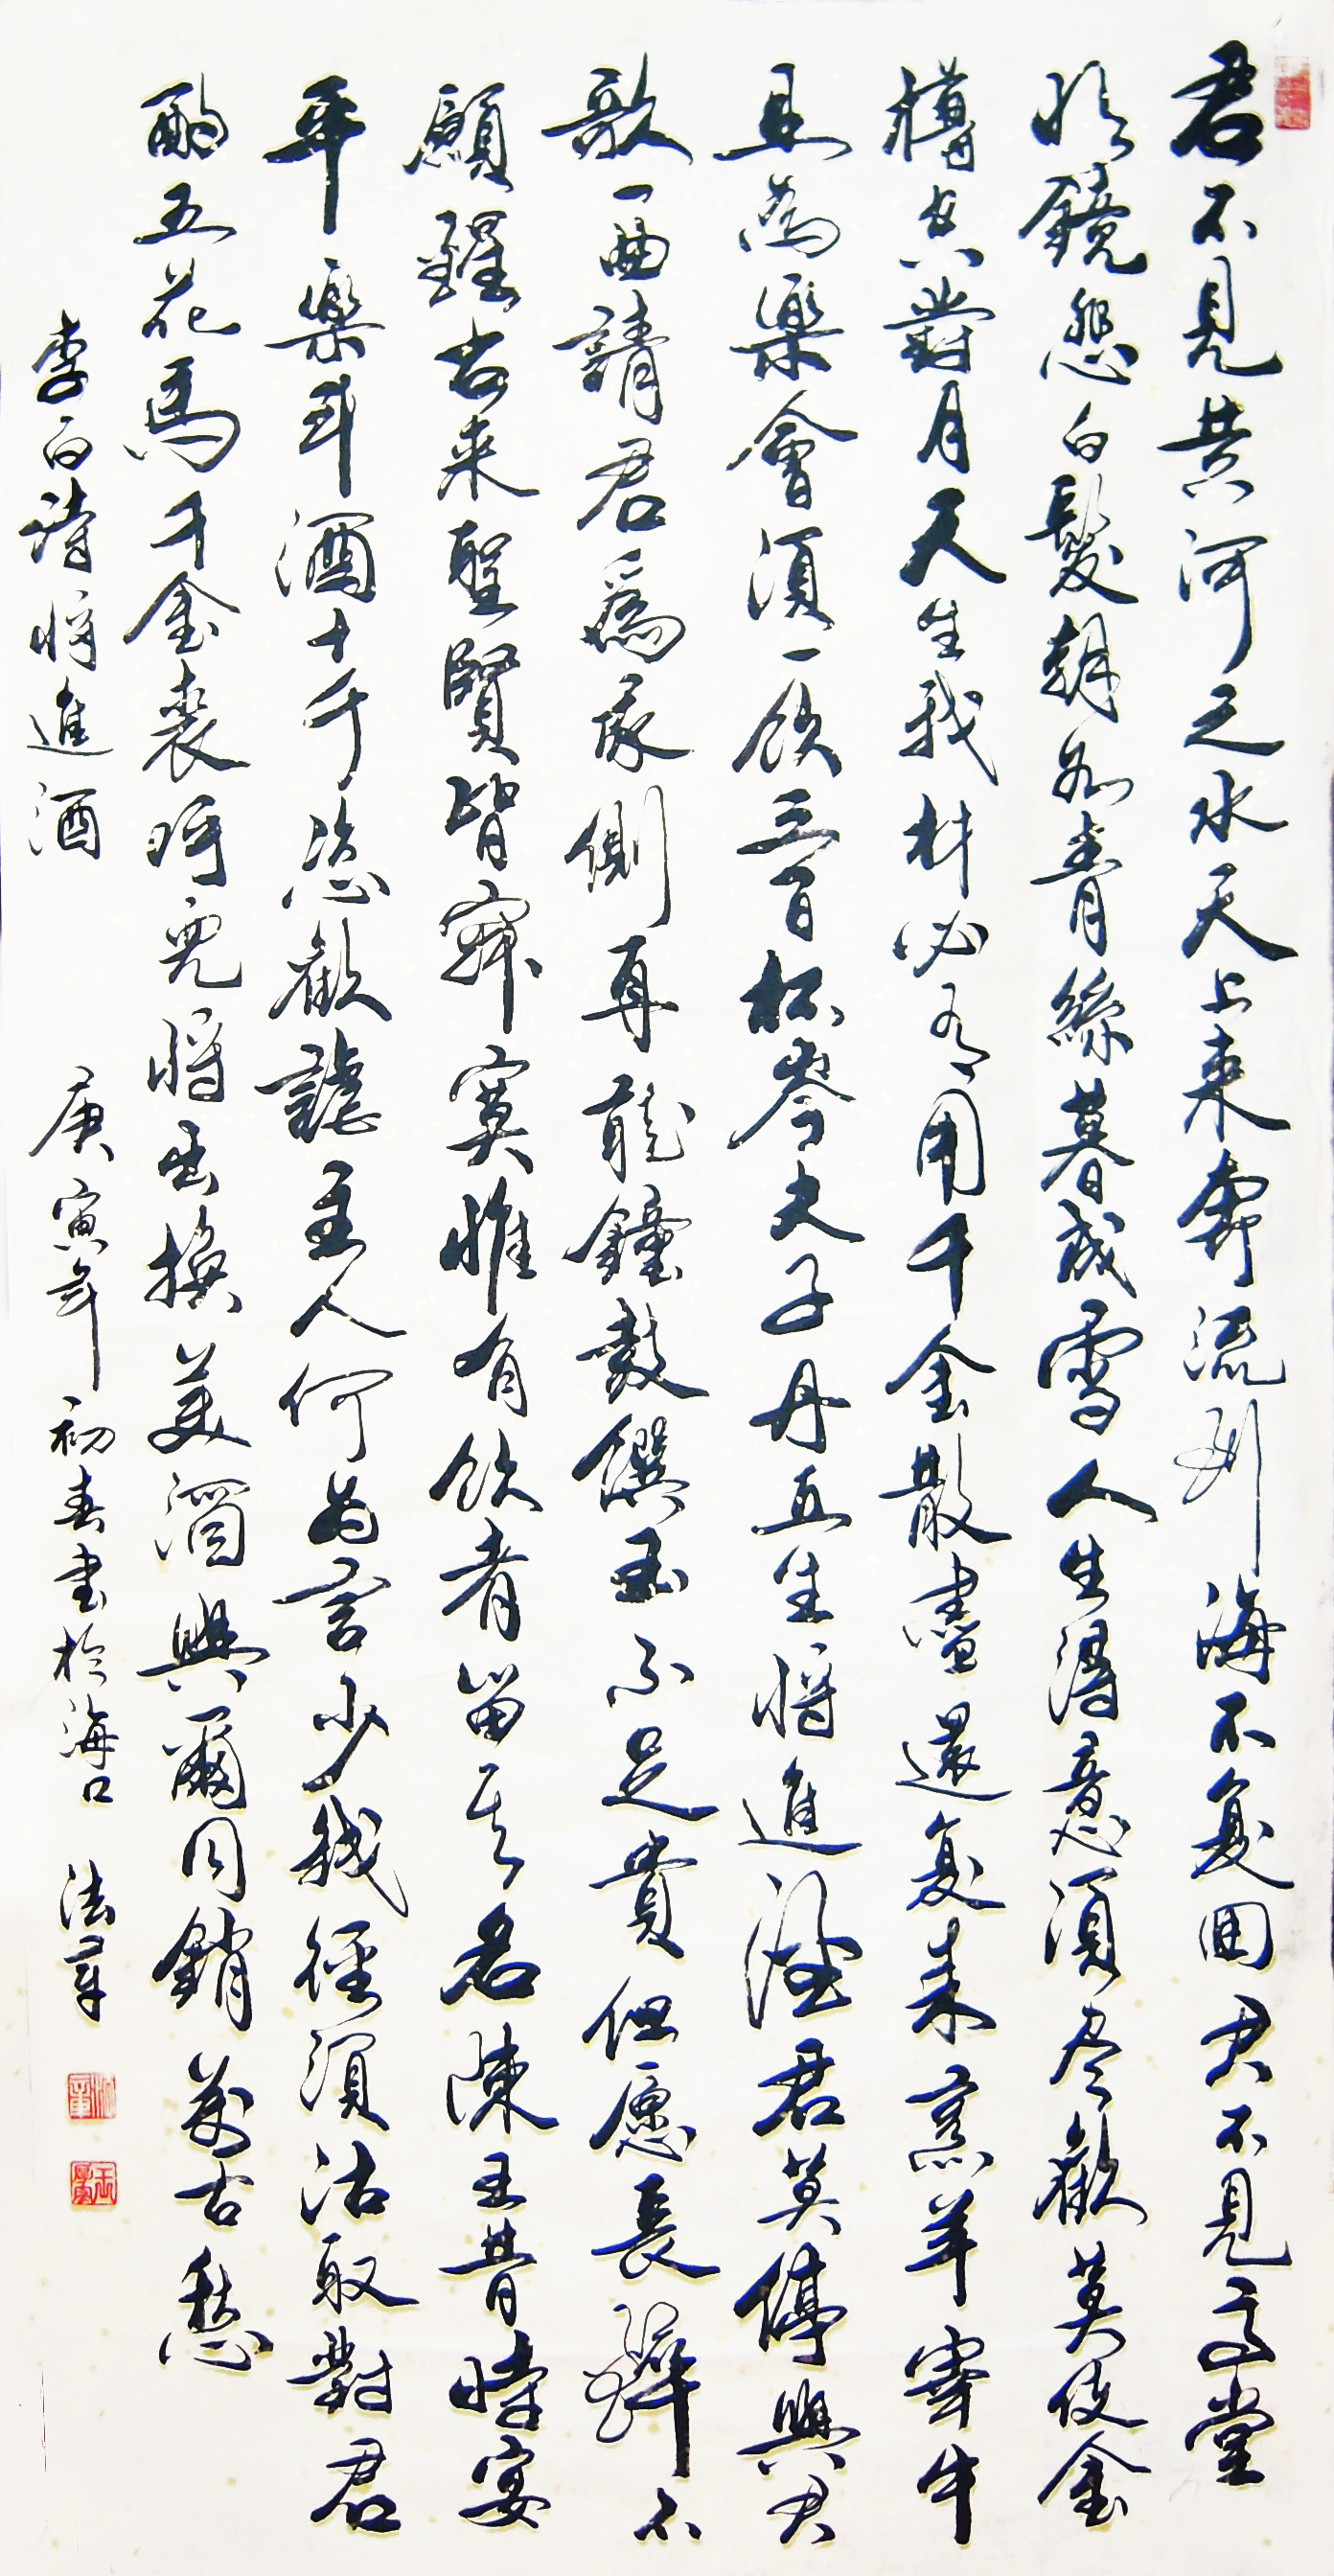 君不見黄河之水天上来奔流到海不复回君不見高堂
明鏡悲白髮朝如青絲暮成雪人生得意須尽歡莫使金
樽空對月天生我材必有用千金散盡還复来烹羊宰牛
且為樂會須一飲三百杯岑夫子丹丘生將進酒君莫停與君
歌一曲請君爲我側耳聽鐘鼓饌玉不足貴但愿長醉不
願醒古来聖賢皆寂寞惟有飲者留其名陳王昔時宴
平樂斗酒十千恣歡謔主人何为言少我徑須沽取對君
酌五花馬千金裘呼兒將出換美酒與爾同銷萬古愁
李白詩將進酒 庚寅年初春書於海口 法章